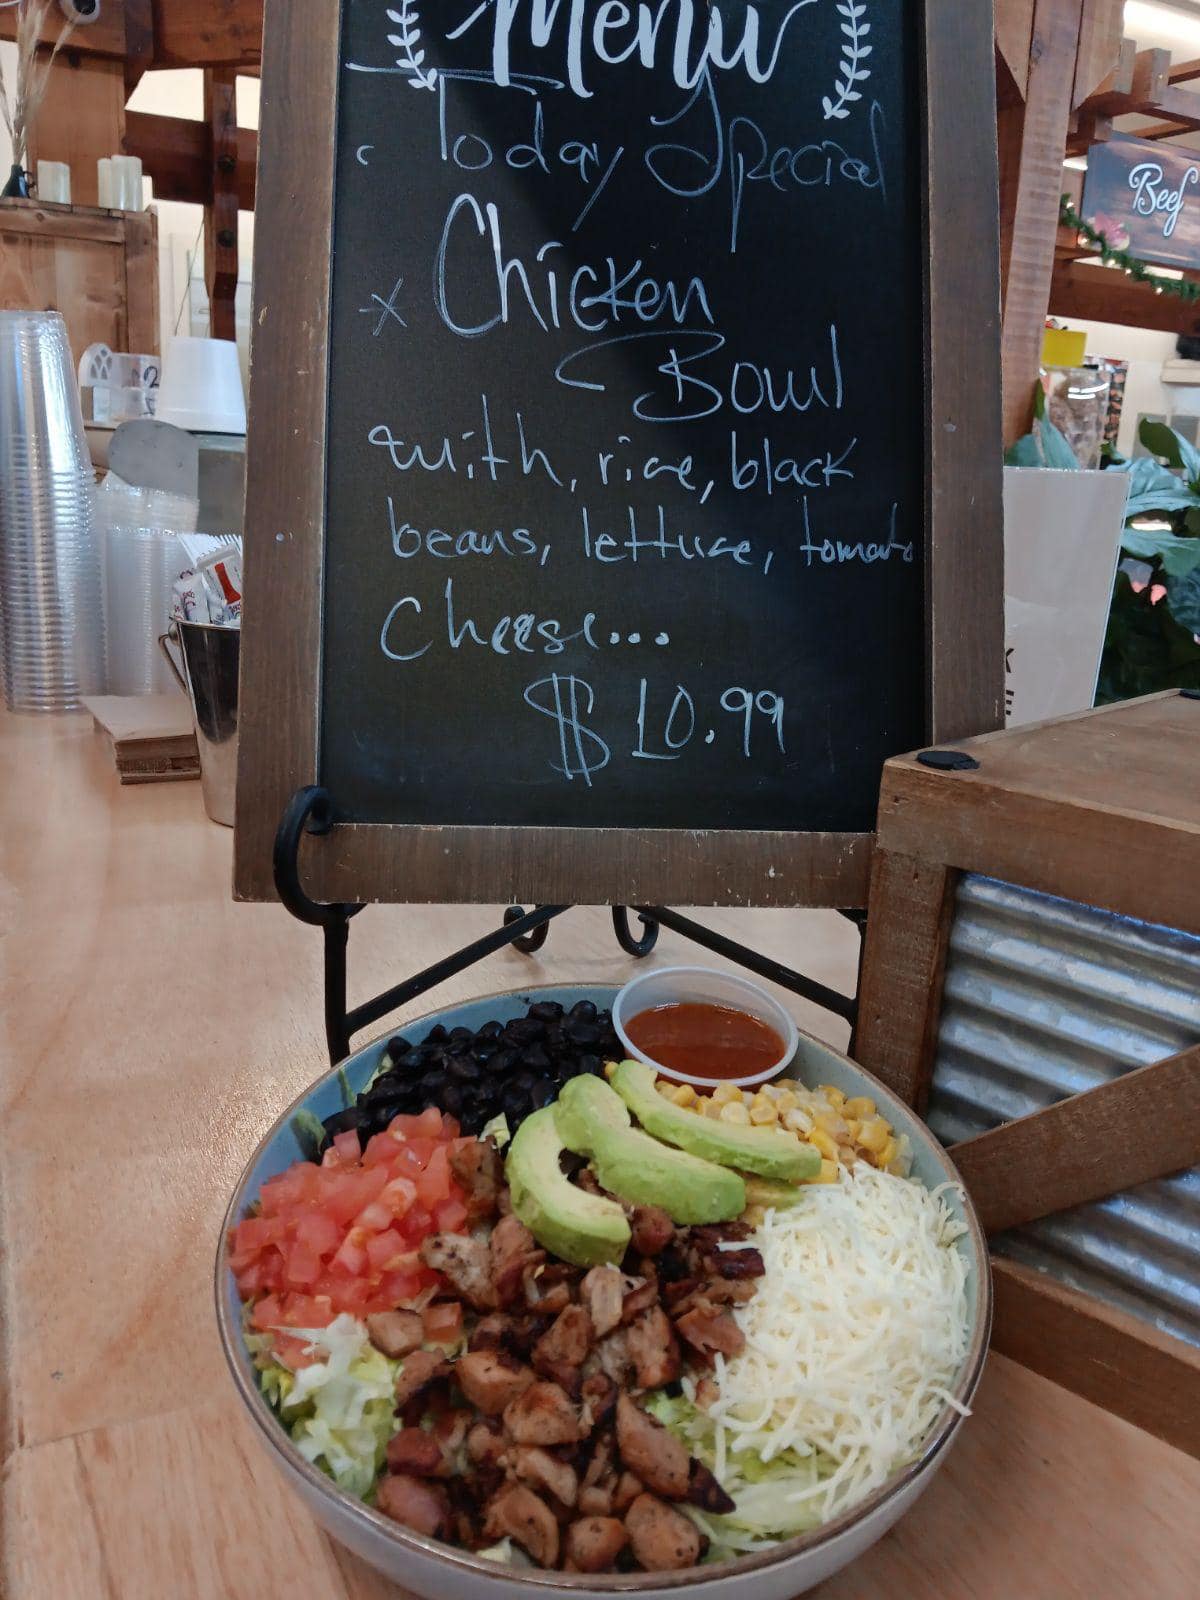 Menu
Today Special
x Chicken
Bowl
with, rice, black
beans, lettuce, tomato
Cheese...
$10.99
Beef